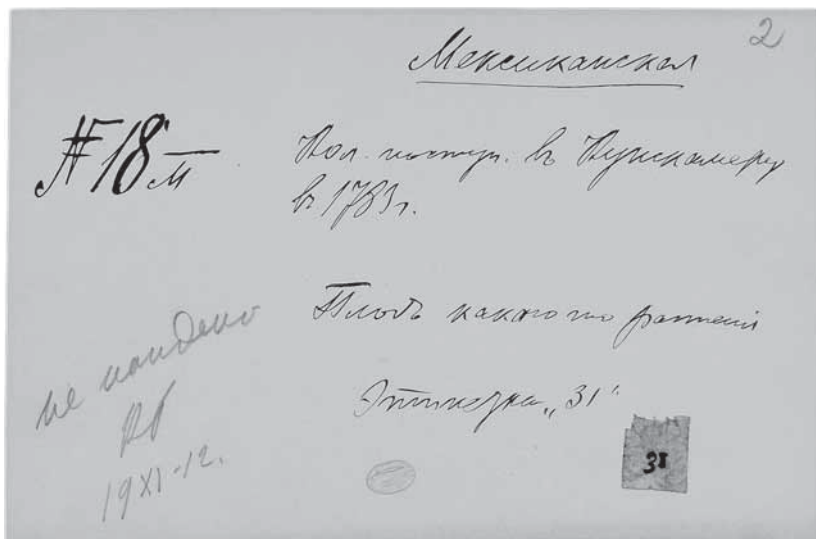 2
Мексиканская
№ 18 м
Кол. поступ. въ Кунсткамеру
въ 1783 г.
Плодъ какого то растенія
Этикетка „31“
31
не найдено
19 XI-12.